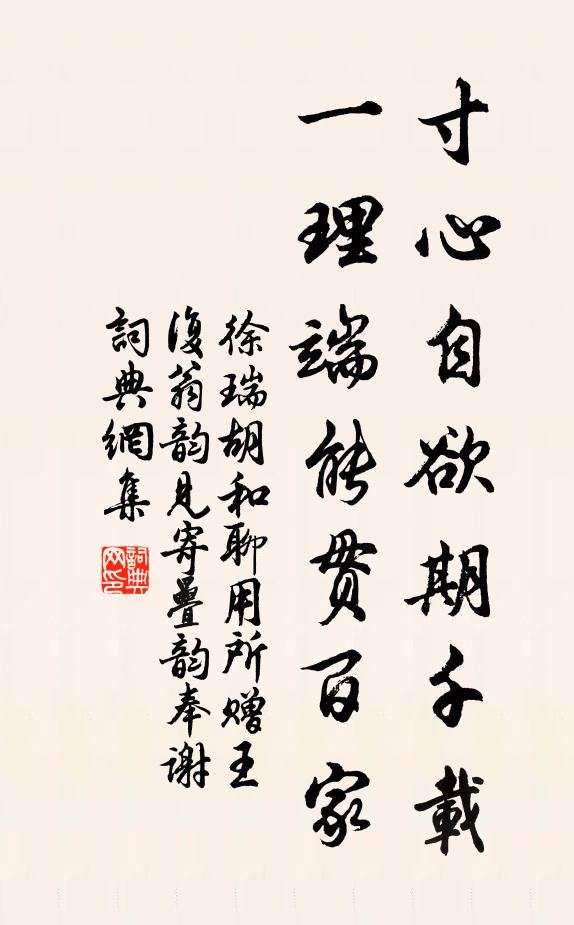 寸心自欲期千載
一理端能貫百家
徐瑞胡和聊用所贈王
復翁韵見寄疊韵奉謝
詞典網集
詞典
网印